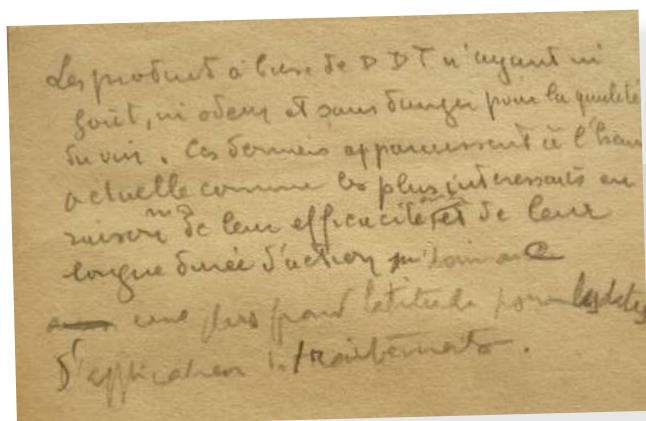 Les produits à base de DDT n'ayant ni
goût, ni odeur et sans danger pour la qualité
du vin. Ces derniers apparaissent à l'heure
actuelle comme les plus intéressants en
raison de leur efficacité et de leur
longue durée d'action
une plus grand latitude pour les dates
d'application traitements.